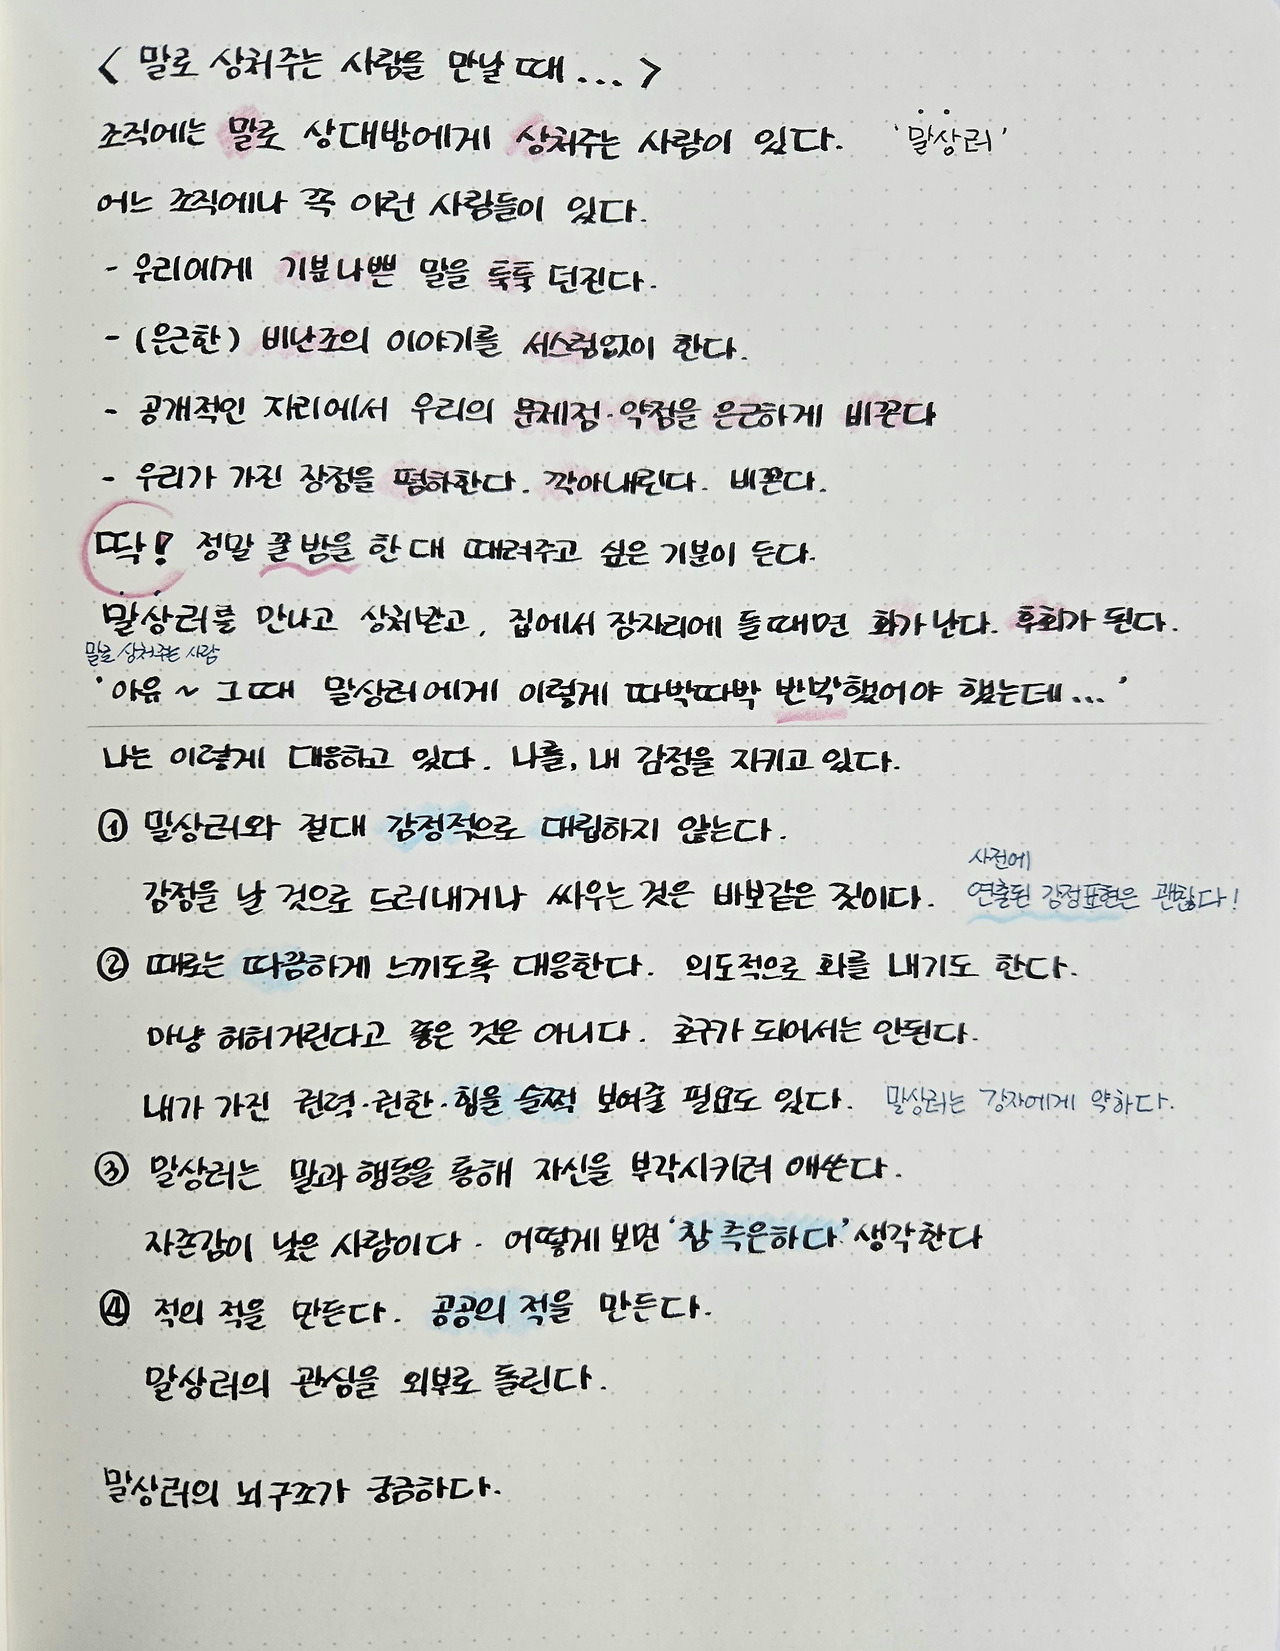 < 말로 상처주는 사람을 만날 때... >
조직에는 말로 상대방에게 상처주는 사람이 있다. '말상러'
어느 조직에나 꼭 이런 사람들이 있다.
- 우리에게 기분나쁜 말을 툭툭 던진다.
- (은근한) 비난조의 이야기를 서스럼없이 한다.
- 공개적인 자리에서 우리의 문제점·약점을 은근하게 비꼰다
- 우리가 가진 장점을 폄하한다. 깍아내린다. 비꼰다.
딱! 정말 꿀밤을 한대 때려주고 싶은 기분이 든다.
말상러를 만나고 상처받고, 집에서 잠자리에 들때면 화가 난다. 후회가 된다.
말로 상처주는 사람
'아유~ 그때 말상러에게 이렇게 따박따박 반박했어야 했는데...'
나는 이렇게 대응하고 있다. 나를, 내 감정을 지키고 있다.
① 말상러와 절대 감정적으로 대립하지 않는다.
사전에
감정을 날 것으로 드러내거나 싸우는 것은 바보같은 짓이다. 연출된 감정표현은 괜찮다!
② 때로는 따끔하게 느끼도록 대응한다. 의도적으로 화를 내기도 한다.
마냥 허허거린다고 좋은 것은 아니다. 호구가 되어서는 안된다.
내가 가진 권력·권한·힘을 슬쩍 보여줄 필요도 있다. 말상러는 강자에게 약하다.
③ 말상러는 말과 행동을 통해 자신을 부각시키려 애쓴다.
자존감이 낮은 사람이다. 어떻게 보면 '참 측은하다' 생각한다
④ 적의 적을 만든다. 공공의 적을 만든다.
말상러의 관심을 외부로 돌린다.
말상러의 뇌구조가 궁금하다.